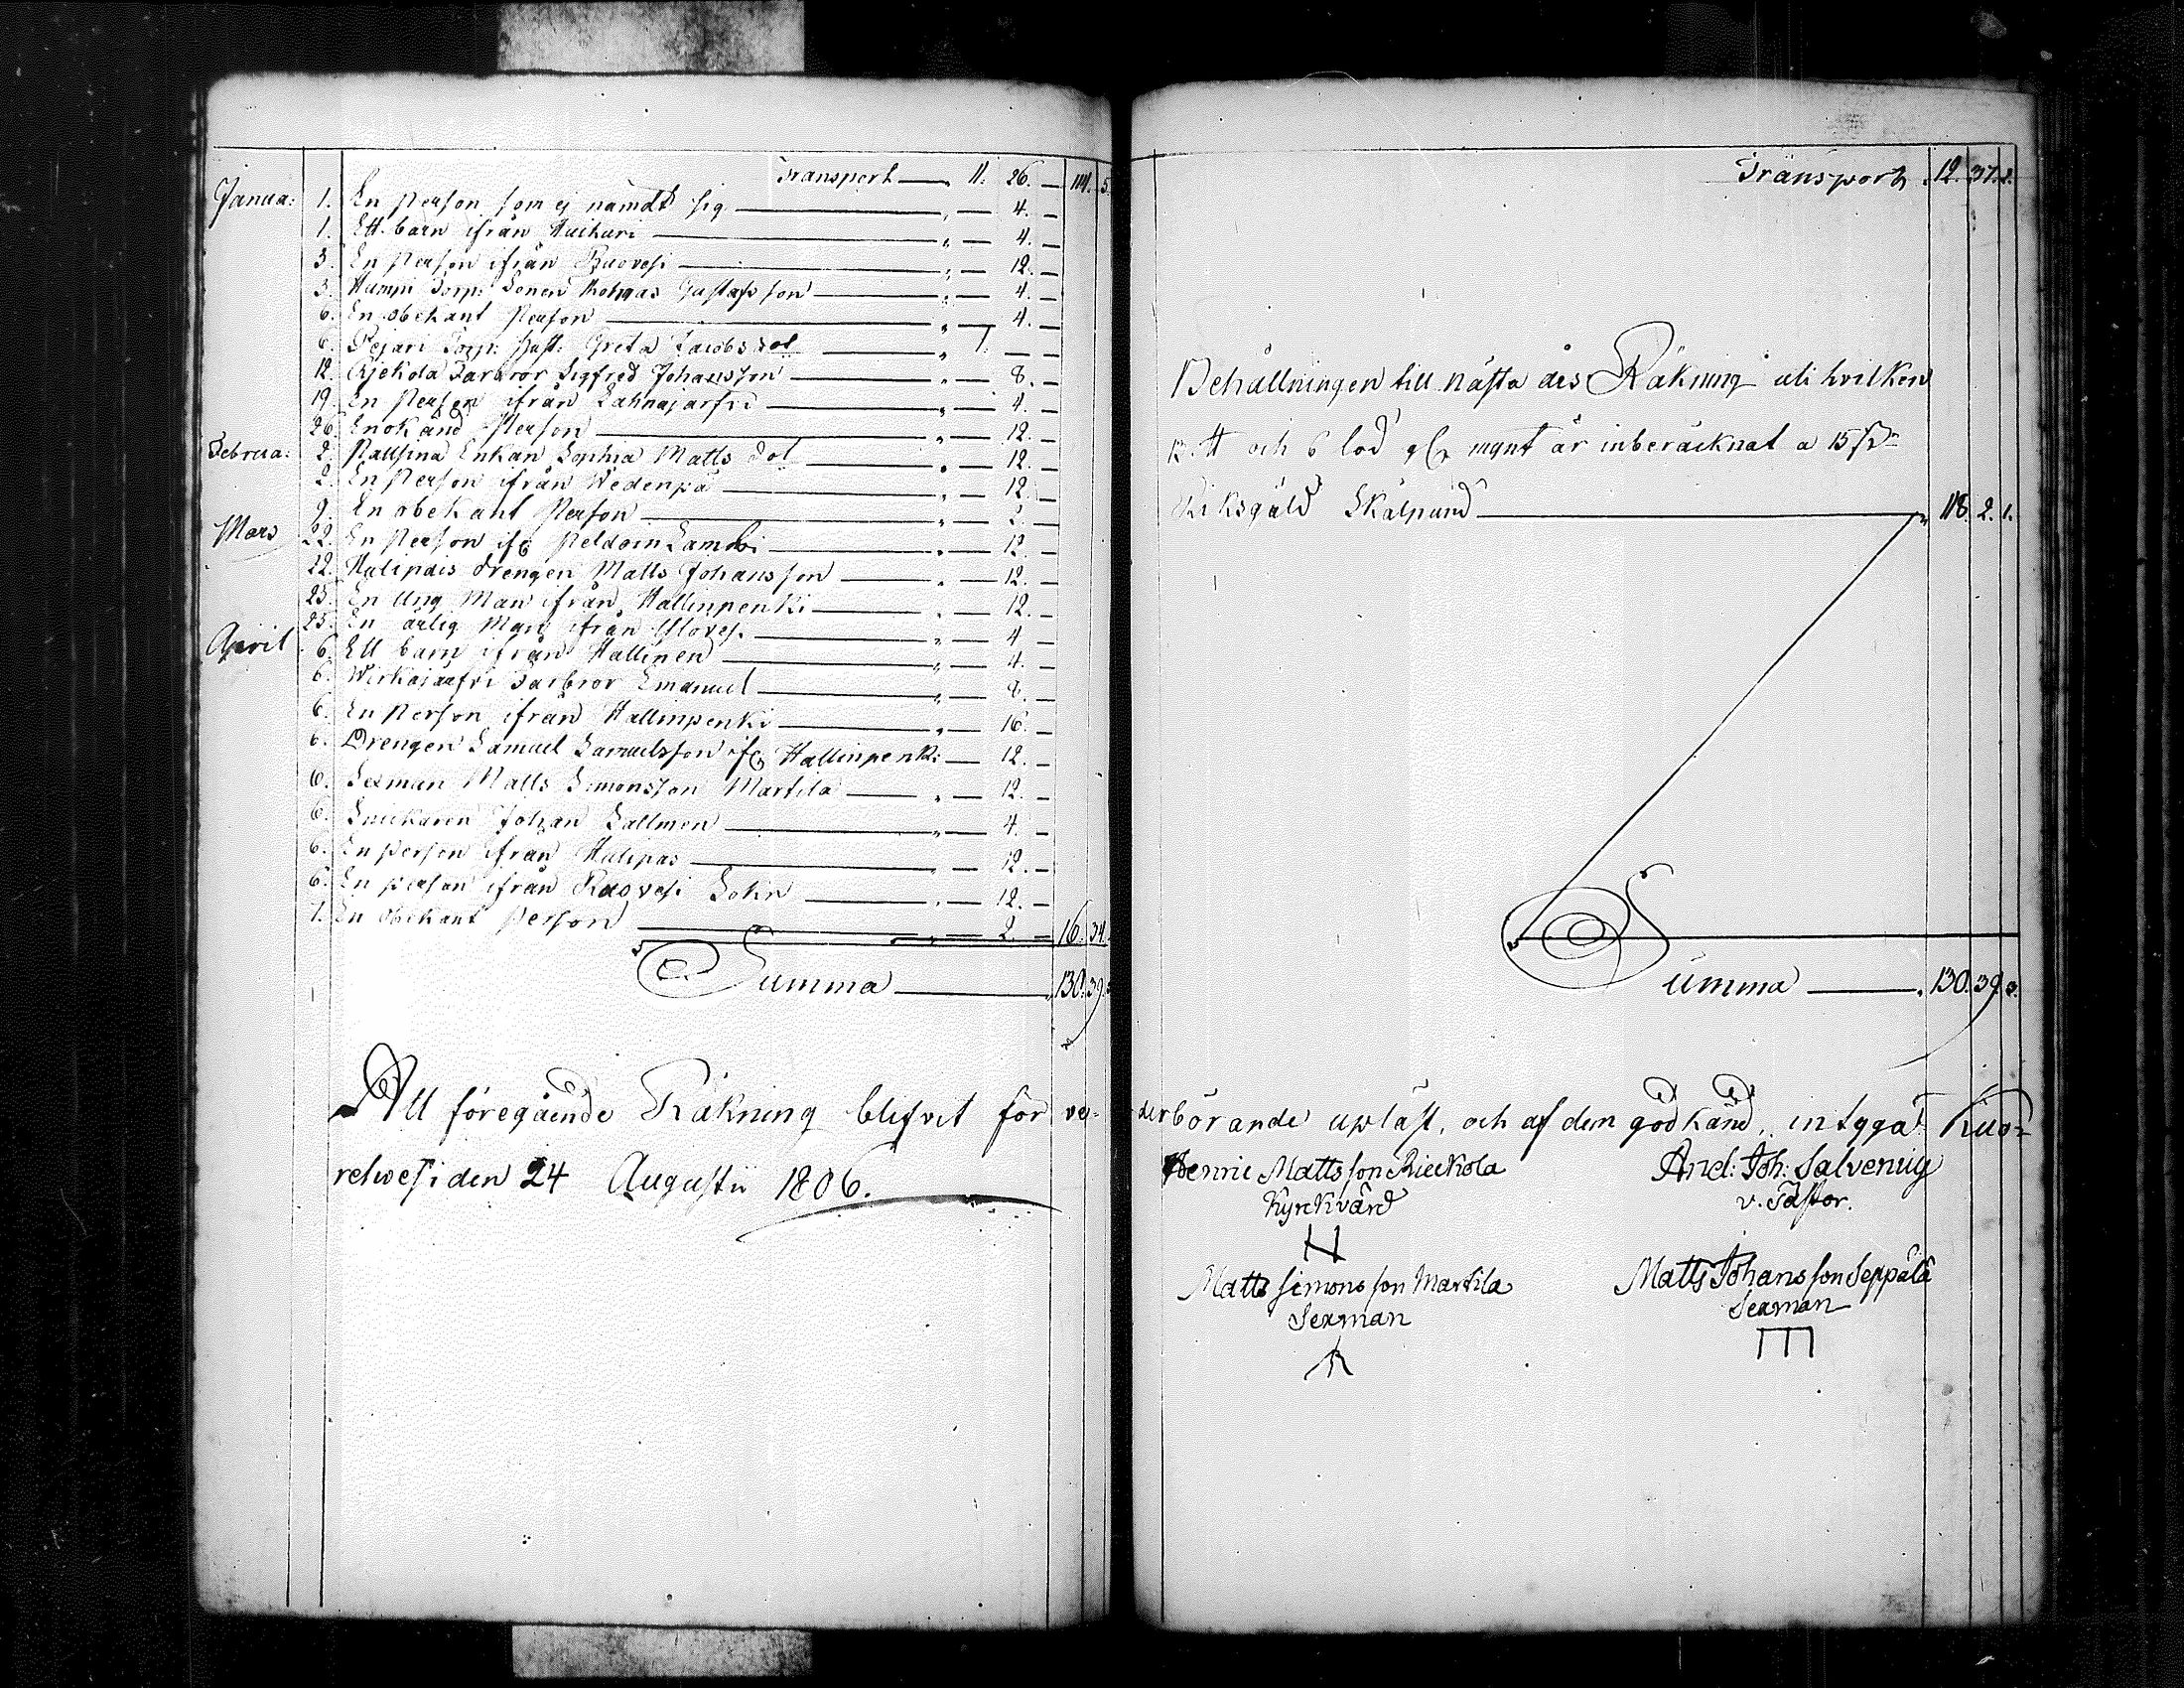 Transport — " 11. 26. — 114. 5.
Janua: 1. En Person som ej nämdt sig — " — 4. —
1. Ett barn ifrån Huikuri — " — 4. —
3. En Person ifrån Ruovesi — " — 12. —
3. Humpi Torp: Sonen Thomas Gustafsson — " — 4. —
6. En obekant Person — " — 4. —
6. Pejari Torp: Hust: Greta Jacobs dot — " 1. — —
12. Riekola Farbror Sigfred Johansson — " — 8. —
19. En Person ifrån Lahnajärfvi — " — 4. —
26. En okänd Person — " — 12. —
Februa: 2. Enkan Sophia Matts dot — " — 12. —
2. En Person ifrån Wedenpä — " — 12. —
9. En obekant Person — " — 2. —
Mars 22. En Person ifr — " — 12. —
22. Hulipas drengen Matts Johansson — " — 12. —
25. En Ung Man ifrån Hallinpenki — " — 12. —
25. En ärlig Man ifrån — " — 4 —
April 6. Ett barn ifrån Hallinen — " — 4. —
6. Wirkajärfvi Farbror Emanuel — " — 8. —
6. En Person ifrån Hallinpenki — " — 16. —
6. Drengen Samuel Samuelsson ifr Hallinpenki — 12. —
6. Sexman Matts Simonsson Martila — " — 12. —
6. Snickaren Johan Sallmen — " — 4. —
6. En Person ifrån Hulipas — " — 12. —
6. En person ifrån Ruovesi Sokn — " — 12. —
7. En obekant Person — " — 2. — 16. 34.
Summa — " 130. 39. 3
Att föregående Räkning blifvit för ve-
relwesi den 24 Augustii 1806.
Transport " 12. 37. 2.
Behållningen till nästa års Räkning uti hvilken
12. ℔ och 6 lod mynt är inberäcknat a 15
Riksgäld Skålpund — " 118. 2. 1.
Summa — " 130. 39. 3.
derbörande upläst, och af dem godkänd, intyga! Kuo-
Henric Mattsson Rieckola And: Joh: Salvenius
Kyrckvärd v. Pastor.
H
Matts Simonsson Martila Matts Johansson Seppälä
Sexman Sexman